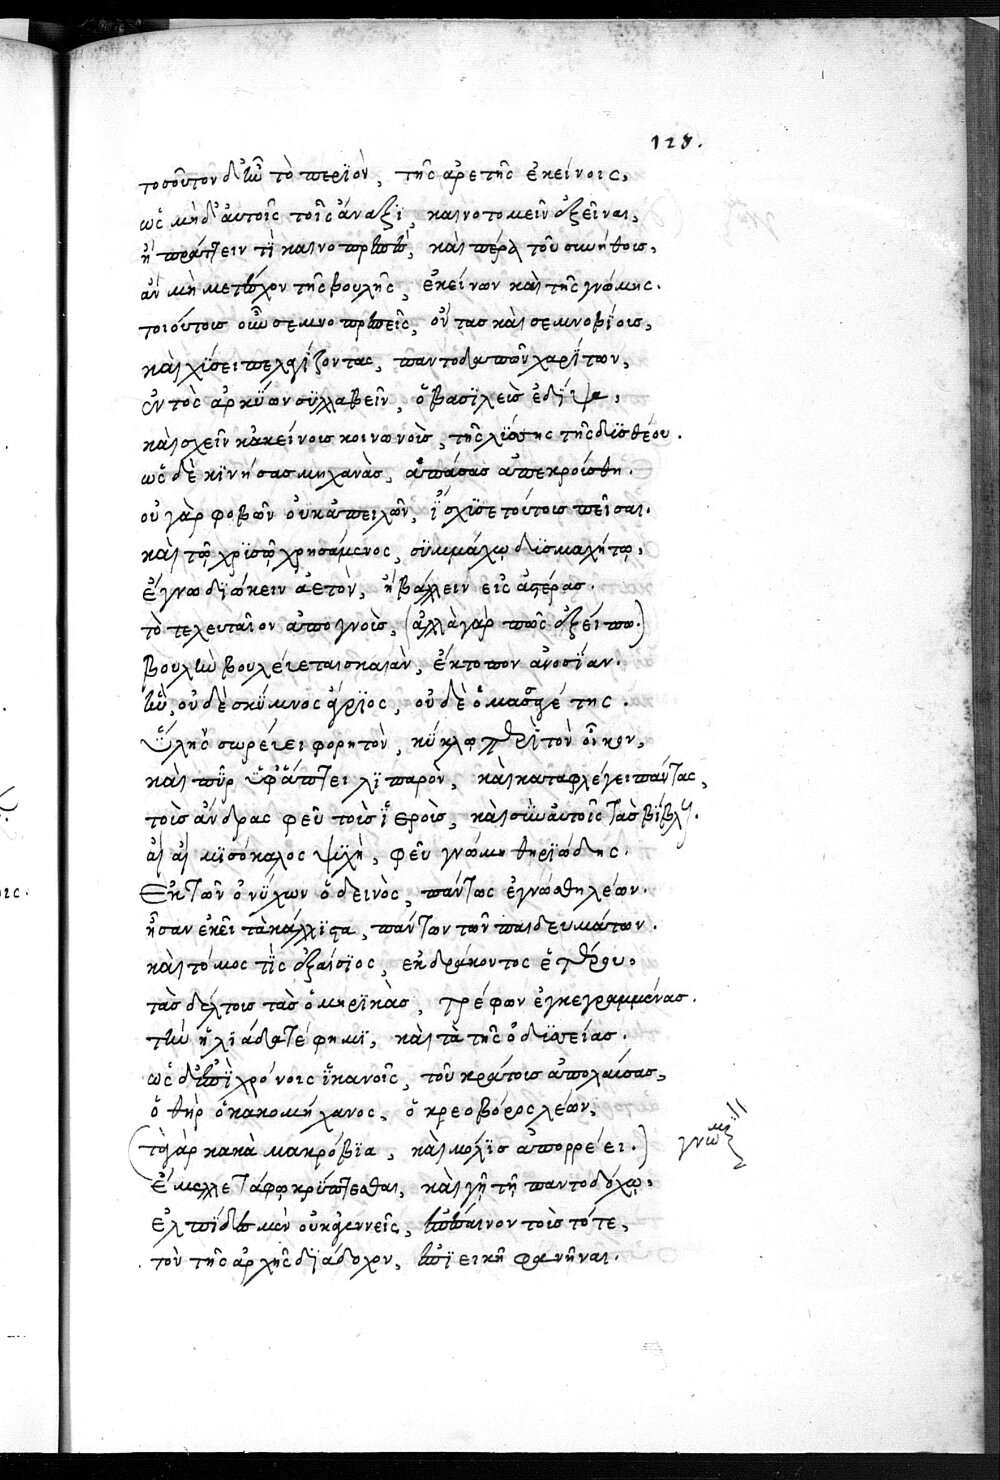 128.
τοσοῦτον δ' ἦν τὸ περϊὸν, τῆς ἀρετῆς ἐκείνοις,
ὡς μὴδ' αὐτοῖς τοῖς ἄναξϊ, καινοτομεῖν ἐξεῖναι,
ἢ πράττειν τϊ καινοπρεπὲς, καὶ πέρα τοῦ συνήθους,
ἂν μὴ μετεῖχον τῆς βουλῆς, ἐκείνων καὶ τῆς γνώμης.
τοιούτους οὖν σεμνοπρεπεῖς, ὄντας καὶ σεμνοβΐους,
καὶ χΰσει πελαγίζοντας, παντοδαπῶν χαρΐτων,
ἐντὸς ἀρκΰων σϋλλαβεῖν, ὁ βασϊλεὺς ἐδΐψα,
καὶ σχεῖν κἀκείνους κοινωνοὺς, τῆς λΰσσης τῆς δϋσθέου.
ὡς δὲ κϊνήσας μηχανὰς, ἁπάσας ἀπεκρούσθη.
οὐ γὰρ φοβῶν οὐκ ἀπειλῶν, ἴσχϋσε τούτους πεῖσαι.
καὶ τῷ χρϊστῷ χρησάμενος, σϋμμάχῳ δϋσμαχήτῳ,
ἔγνω δϊώκειν ἀετὸν, ἢ βάλλειν εἰς ἀστέρας.
τὸ τελευταῖον ἀπογνοὺς, (ἀλλὰ γὰρ πῶς ἐξείπω.)
βουλὴν βουλεύεται σκαιὰν, ἔκτοπον ἀνοσΐαν.
ἣν, οὐδὲ σκΰμνος ἄγρϊος, οὐδὲ ὁ μασσαγέτης.
ὕλης σωρεύει φορητὸν, κΰκλῳ περὶ τὸν οἶκον,
καὶ πῦρ ὑφάπτει λϊπαρὸν, καὶ καταφλέγει πάντας,
τοὺς ἄνδρας φεῦ τοὺς ἱεροὺς, καὶ σὺν αὐτοῖς τὰς βΐβλους.
αἲ αἲ μϊσόκαλος ψϋχὴ, φεῦ γνώμη θηρϊώδης.
ἐκ τῶν ὀνΰχων ὁ δεινὸς, πάντως ἐγνώσθη λέων.
ἦσαν ἐκεῖ τὰ κάλλϊστα, πάντων τῶν παιδευμάτων.
καὶ τόμος τϊς ἐξαίσϊος, ἐκ δράκοντος ἐντέρου.
τὰς δέλτους τὰς ὁμηρϊκὰς, φέρων ἐγκεγραμμένας.
τὴν ἠλϊάδα τέ φημϊ, καὶ τὰ τῆς ὀδϋσσείας.
ὡς δ' ἐπϊ χρόνοις ἱκανοῖς, τοῦ κράτους ἀπολαύσας,
ὁ θὴρ ὁ κακομήχανος, ὁ κρεοβόρος λέων,
(τὰ γὰρ κακὰ μακρόβϊα, καὶ μόλϊς ἀπορρέει.) γνωμ
ἔμελλε τάφῳ κρΰπτεσθαι, καὶ γῇ τῇ παντοδόχῳ,
ἐλπΐδες μὲν οὐκ ἀγεννεῖς, ὑπέσαινον τοὺς τότε,
τὸν τῆς ἀρχῆς δϊάδοχον, ἐπϊεικῆ φανῆναι.